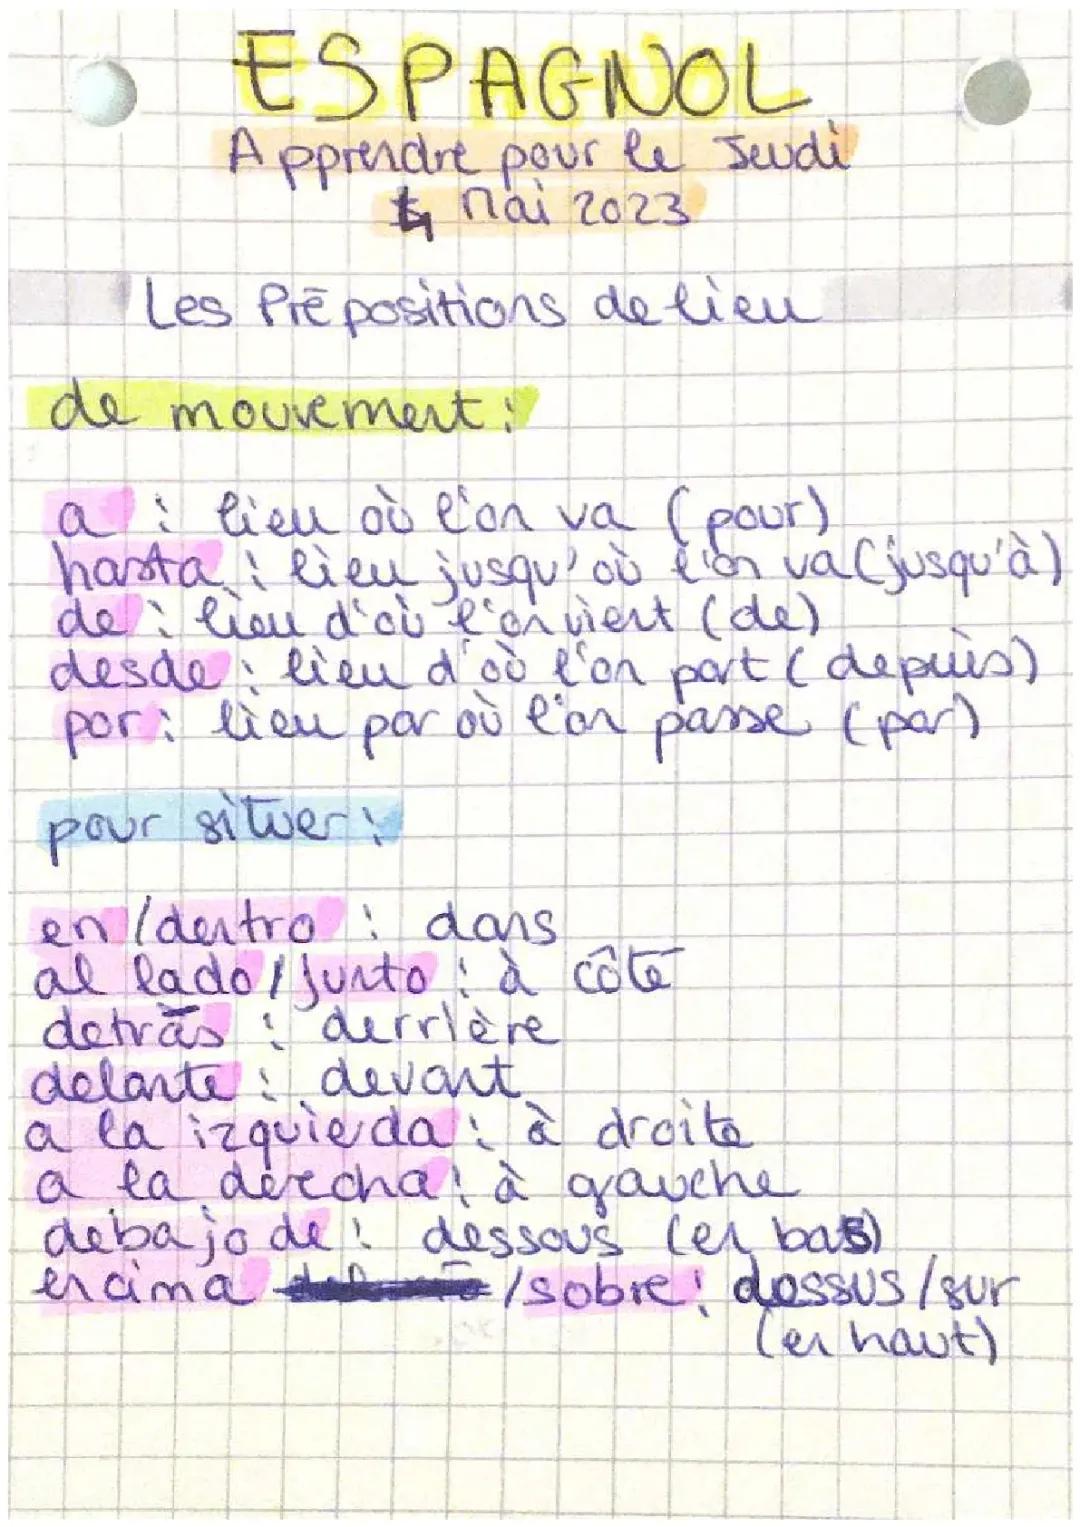 ESPAGNOL
Apprendre pour le Jeudi
4 Mai 2023
Les Prépositions de lieu
de mouvement :
a : lieu où l'on va (pour)
hasta : lieu jusqu'où l'on va (jusqu'à)
de : lieu d'où l'on vient (de)
desde : lieu d'où l'on part (depuis)
por : lieu par où l'on passe (par)
pour situer :
en /dentro : dans
al lado / junto : à côté
detrás : derrière
delante : devant
a la izquierda : à droite
a la derecha : à gauche
debajo de : dessous (en bas)
encima /sobre : dessus /sur
(en haut)